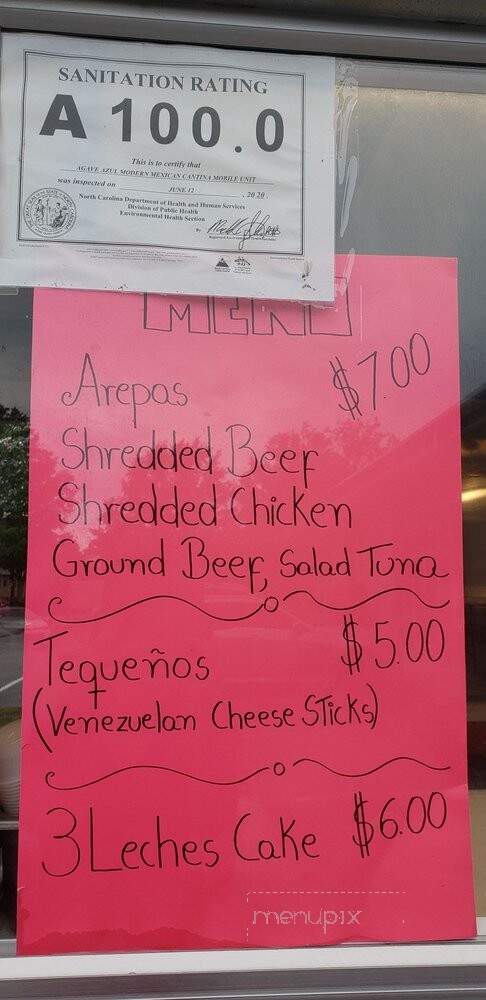 SANITATION RATING
A 100.0
This is to certify that
AGAVE AZUL MODERN MEXICAN CANTINA MOBILE UNIT
was inspected on JUNE 12, 2020.
North Carolina Department of Health and Human Services
Division of Public Health
Environmental Health Section
By
MENU
Arepas $7.00
Shredded Beef
Shredded Chicken
Ground Beef, Salad Tuna
Tequeños $5.00
(Venezuelan Cheese Sticks)
3 Leches Cake $6.00
menupix